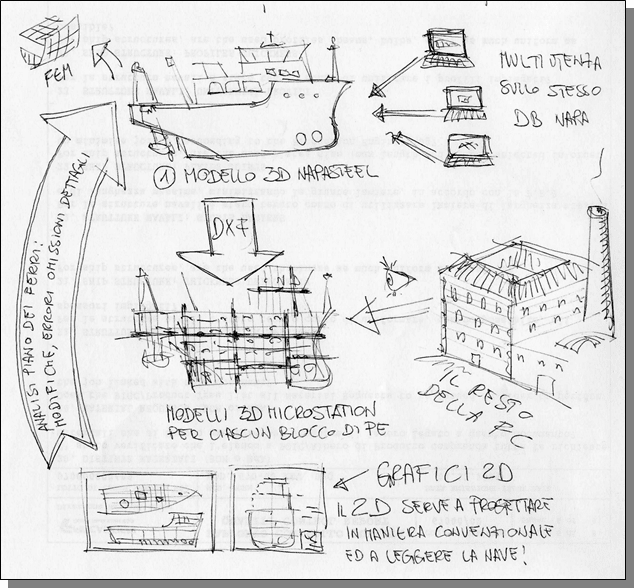 FEM
MULTIUTENZA
SULLO STESSO
DB NAPA
① MODELLO 3D NAPASTEEL
DXF
ANALISI PIANO DEI FERRI:
MODIFICHE, ERRORI, OMISSIONI DETTAGLI
IL RESTO
DELLA FC
MODELLI 3D MICROSTATION
PER CIASCUN BLOCCO DI PE
GRAFICI 2D
IL 2D SERVE A PROGETTARE
IN MANIERA CONVENZIONALE
ED A LEGGERE LA NAVE!